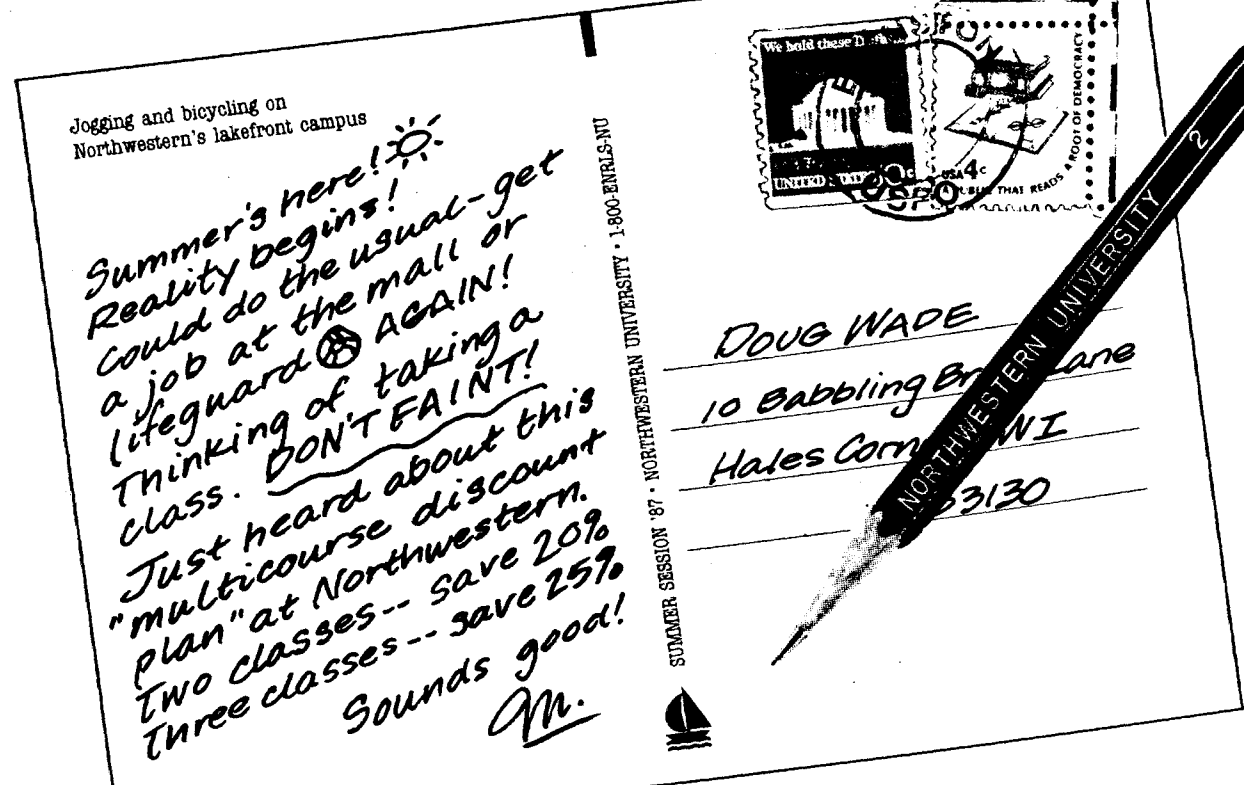 Jogging and bicycling on
Northwestern's lakefront campus
Summer's here!
Reality begins!
Could do the usual-get
a job at the mall or
lifeguard AGAIN!
Thinking of taking a
class. DON'T FAINT!
Just heard about this
"multicourse discount
plan" at Northwestern.
Two classes-- save 20%
Three classes-- save 25%
Sounds good!
M.
SUMMER SESSION '87 • NORTHWESTERN UNIVERSITY • 1-800-ENRLS-NU
We hold these
UNITED
USA 4c
THAT READS A ROOT OF DEMOCRACY
USPO
DOUG WADE
10 Babbling Lane
Hales WI
53130
NORTHWESTERN UNIVERSITY 2